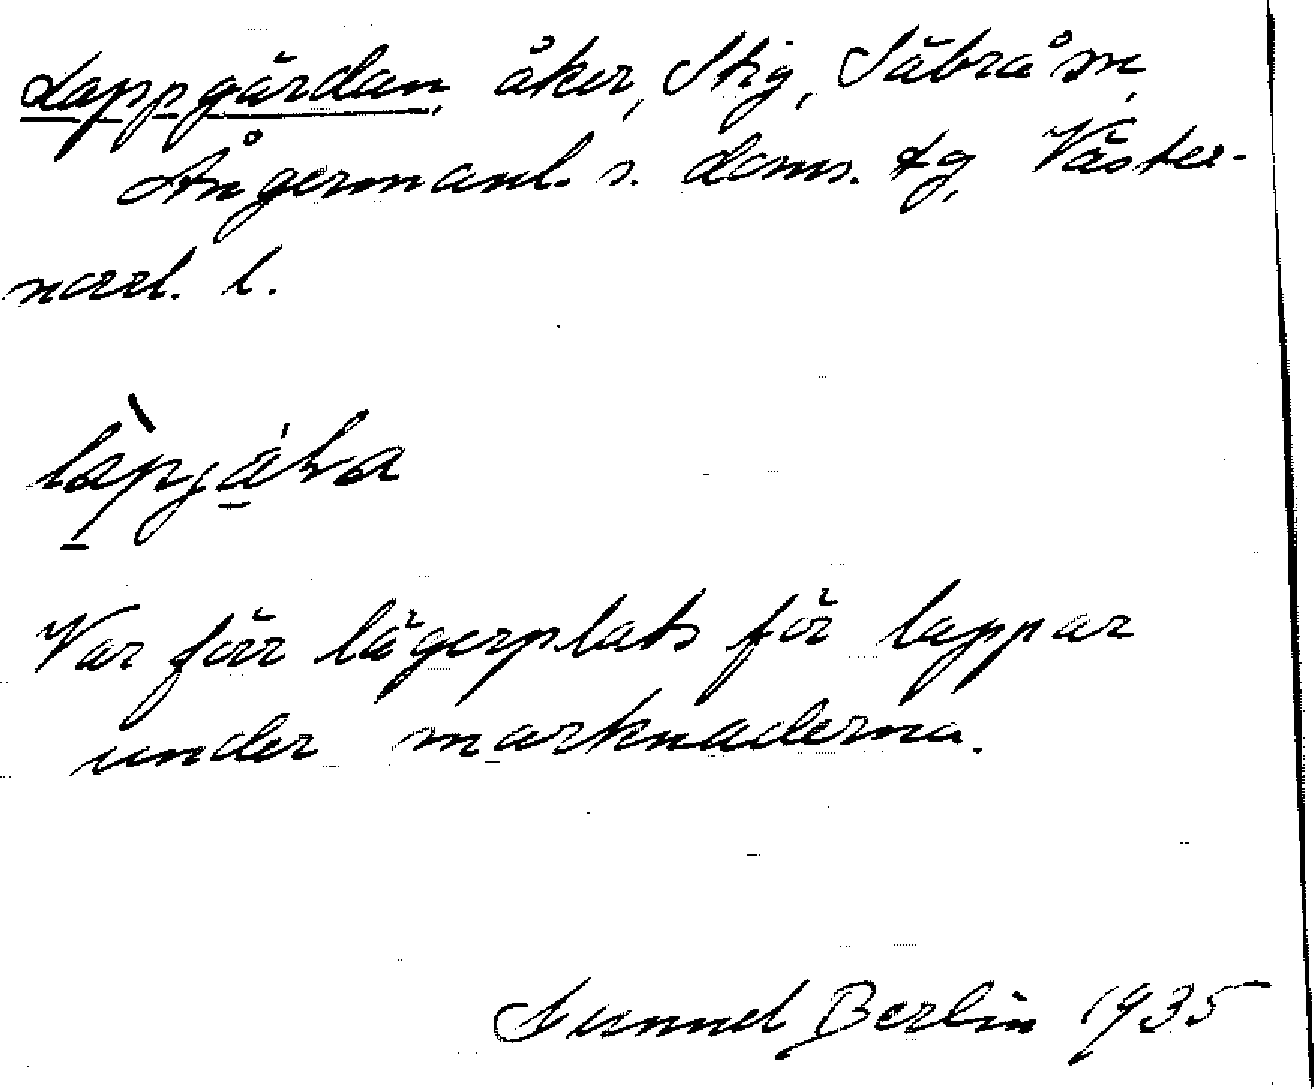 Lappgärdan, åker, Stig, Säbrå sn,
Ångermanl. s. doms. tg, Väster-
norrl. l.
Var förr lägerplats för lappar
under marknaderna.
Gunnel Berlin 1935